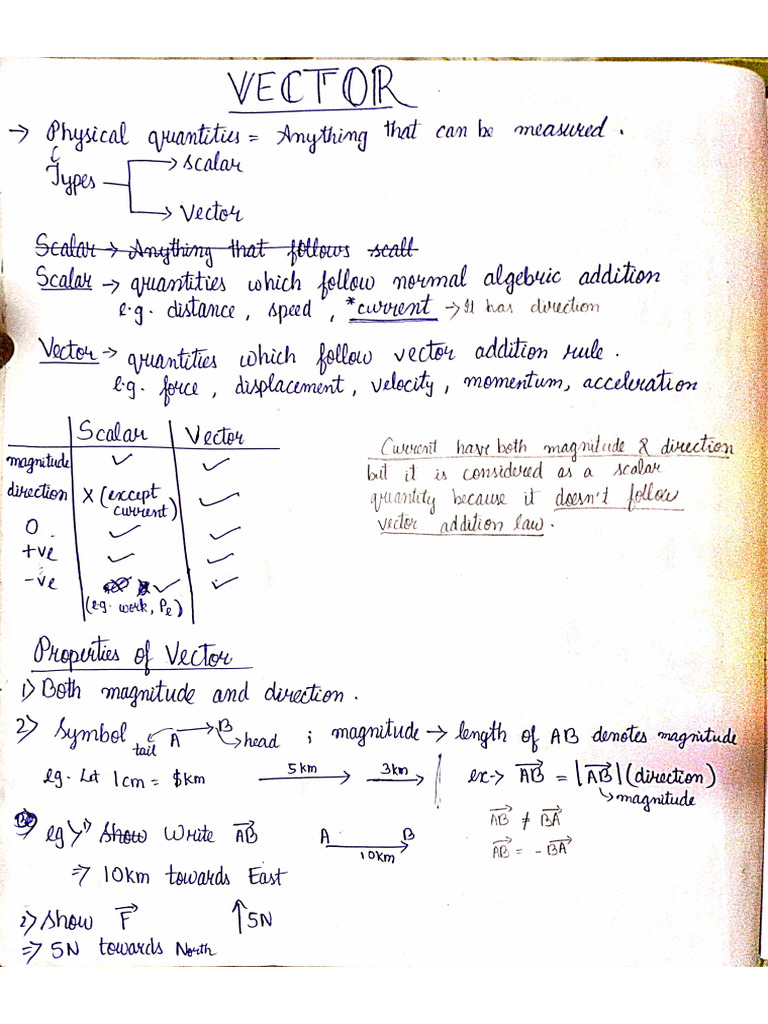 VECTOR
→ Physical quantities = Anything that can be measured.
Types → Scalar
→ Vector
Scalar → Anything that follows scall
Scalar → quantities which follow normal algebric addition
e.g. distance, speed, *current → It has direction
Vector → quantities which follow vector addition rule.
e.g. force, displacement, velocity, momentum, acceleration
Scalar Vector
magnitude ✓ ✓
direction X (except current) ✓
0 ✓ ✓
+ve ✓ ✓
-ve ✓ ✓
(e.g. work, Pe)
Current have both magnitude & direction
but it is considered as a scalar
quantity because it doesn't follow
vector addition law.
Properties of Vector
1) Both magnitude and direction.
2) Symbol tail A → B head ; magnitude → length of AB denotes magnitude
eg. Let 1cm = $km 5km 3km ex→ A͞B⃗ = |A͞B⃗| (direction)
↳ magnitude
A͞B⃗ ≠ B͞A⃗
A͞B⃗ = - B͞A⃗
eg> 1) Show Write A͞B⃗ A B 10km
⇒ 10km towards East
2) Show F⃗ ↑5N
⇒ 5N towards North